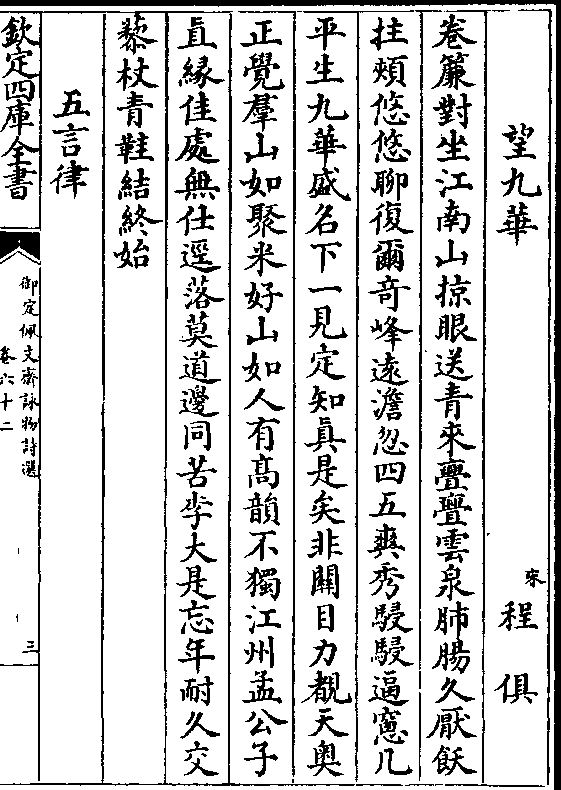 望九華
宋程俱
卷簾對坐江南山掠眼送青來亹亹雲泉肺腸久厭飫
拄頰悠悠聊復爾竒峰逺澹忽四五爽秀駸駸逼窻几
平生九華盛名下一見定知眞是矣非關目力覩天奥
正覺羣山如聚米好山如人有髙韻不獨江州孟公子
直縁佳處無仕逕落莫道邊同苦李大是忘年耐久交
藜杖青鞋結終始
五言律
欽定四庫全書
御定佩文齋詠物詩選
卷六十二
三